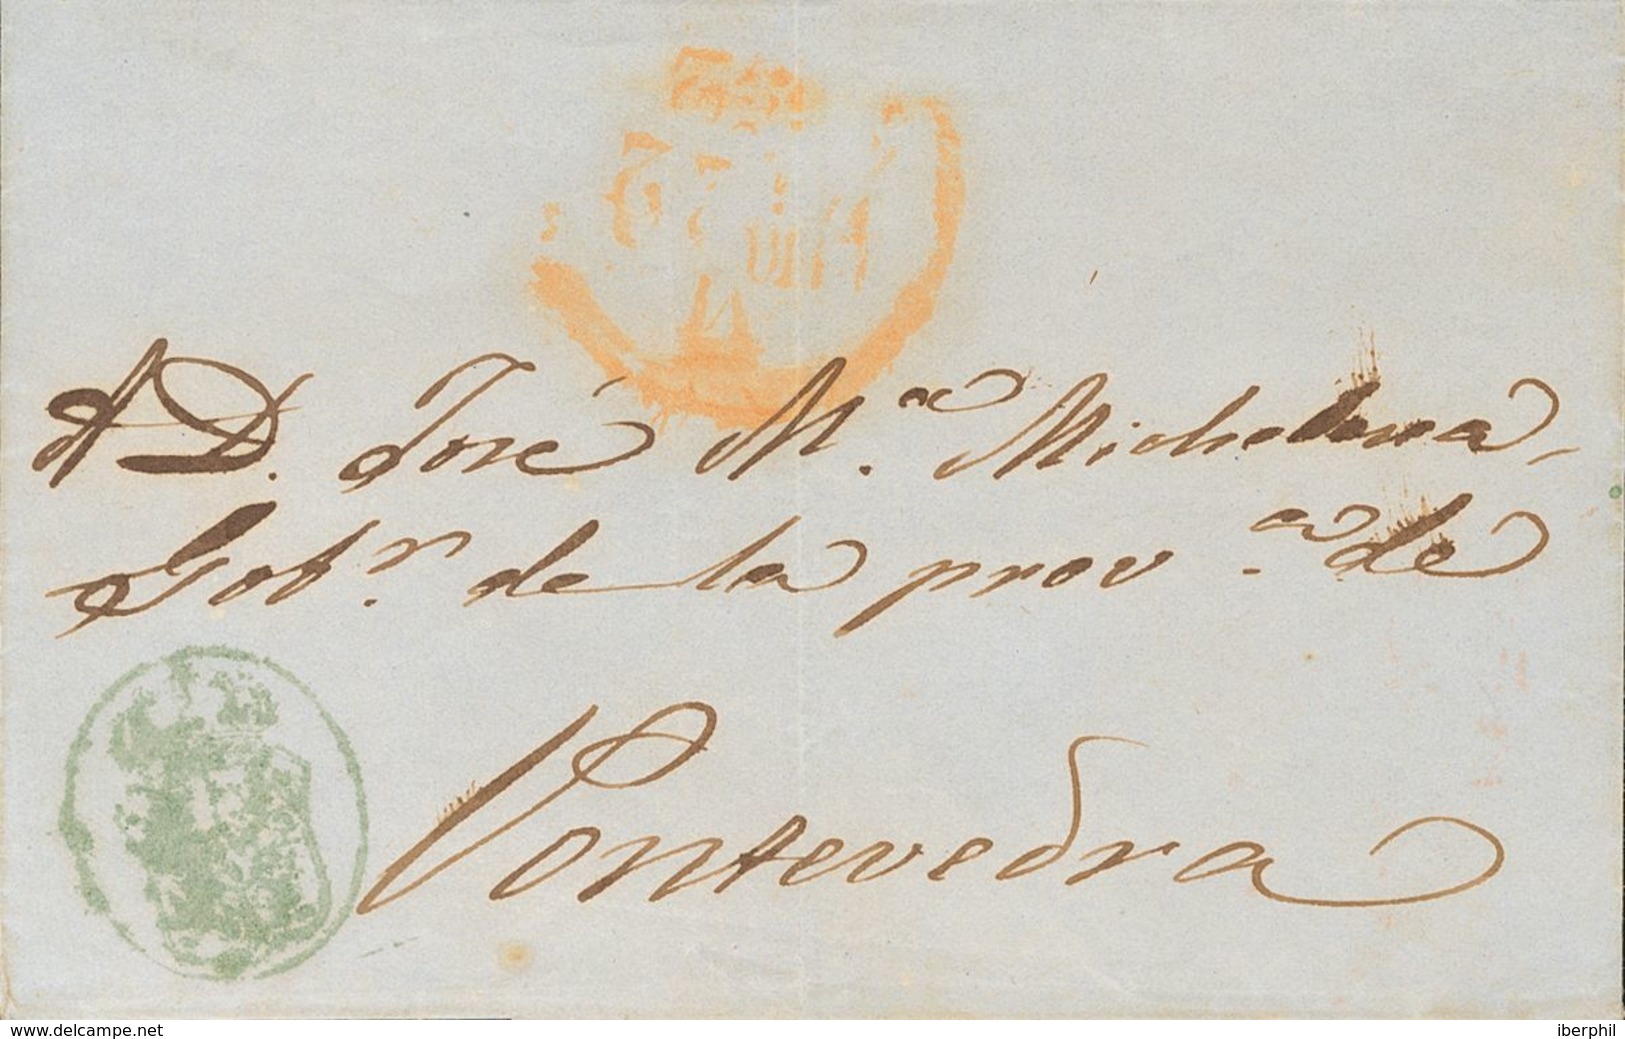 A D. José M.ª Michelena,
Gob.r de la prov.ª de
Pontevedra
www.delcampe.net
iberphil